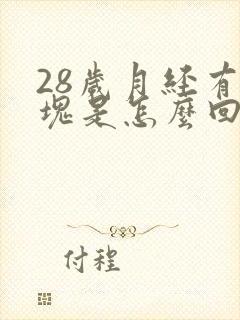 28歲月經有
塊是怎麼回
付程